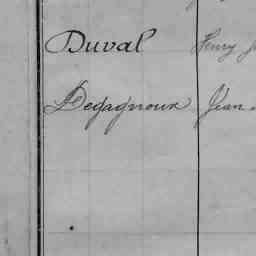 Duval Henry J
Degagnoux Jean